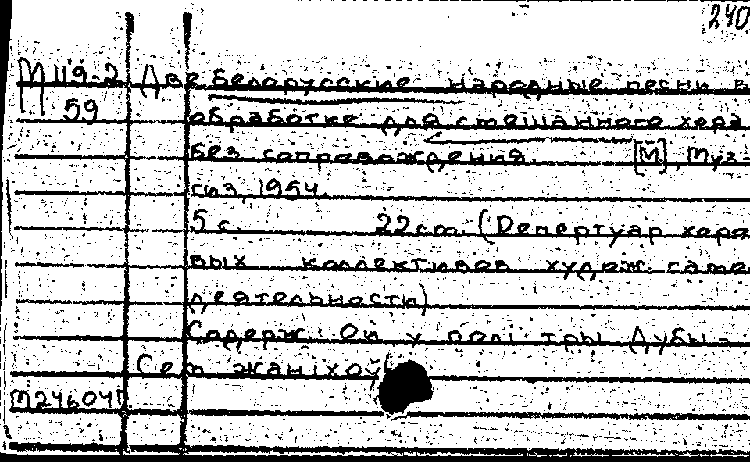 240
М 119-2 Две белорусские народные песни в
59 обработке для смешанного хора
без сопровождения. [М], Муз-
гиз, 1954.
5 с. 22 cm. (Репертуар хоро
вых коллективов худож. само
деятельности)
Содерж.: Ой у полі тры дубы. -
Сем жаніхоў
М24604